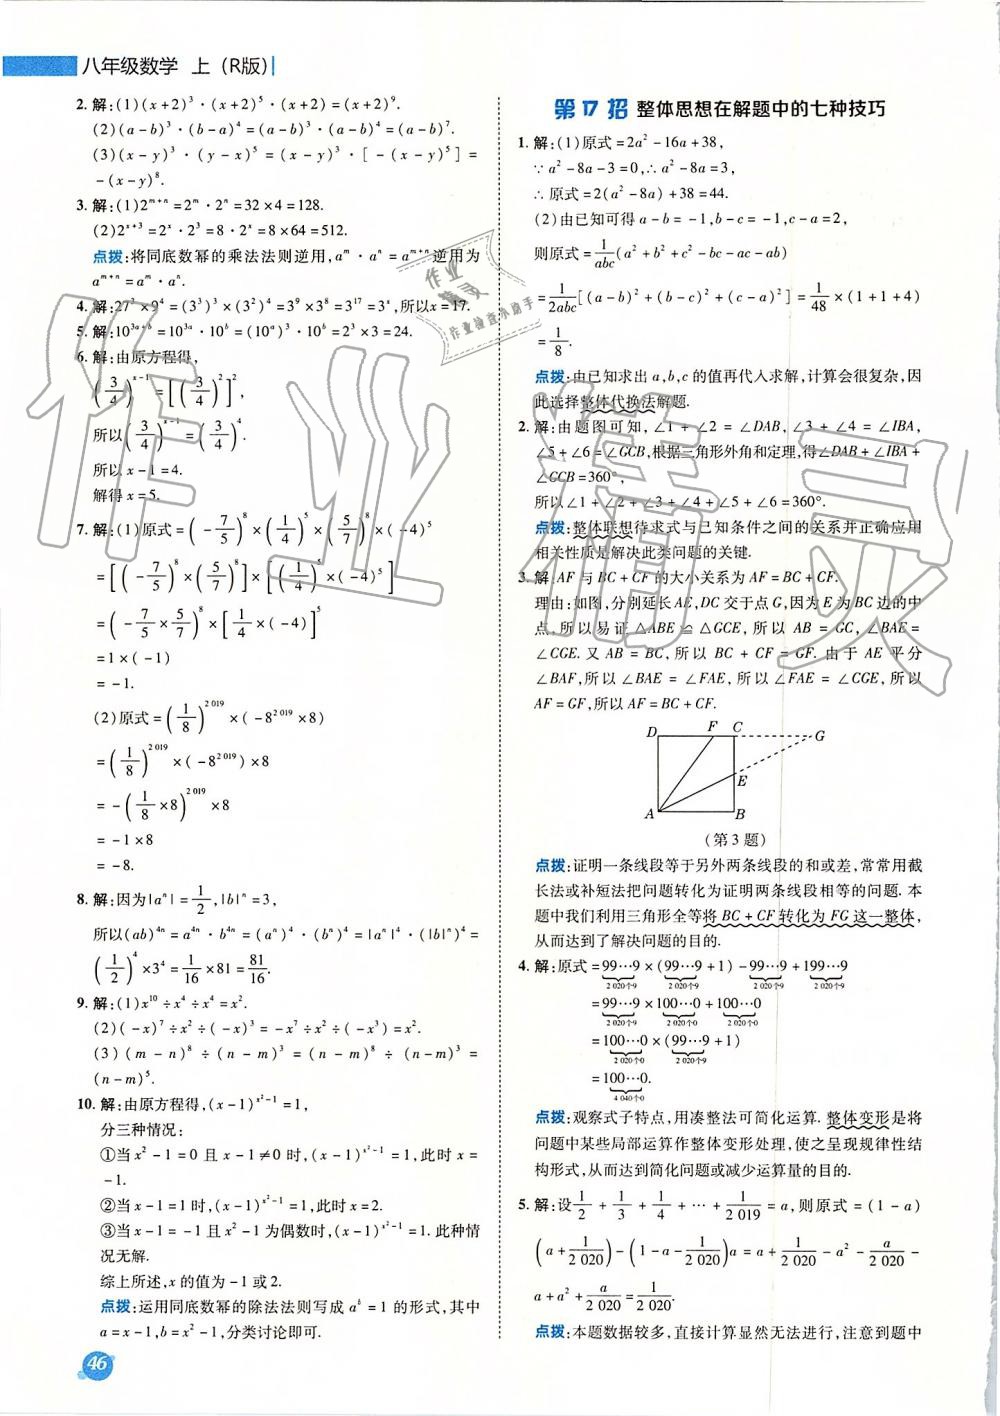 八年级数学 上（R版）
2. 解:(1)(x+2)³·(x+2)⁵·(x+2)=(x+2)⁹.
(2)(a-b)³·(b-a)⁴=(a-b)³·(a-b)⁴=(a-b)⁷.
(3)(x-y)³·(y-x)⁵=(x-y)³·[-(x-y)⁵]=
-(x-y)⁸.
3. 解:(1)2^(m+n)=2^m·2^n=32×4=128.
(2)2^(x+3)=2^x·2³=8·2^x=8×64=512.
点拨:将同底数幂的乘法法则逆用,a^m·a^n=a^(m+n)逆用为
a^(m+n)=a^m·a^n.
4. 解:27³×9⁴=(3³)³×(3²)⁴=3⁹×3⁸=3¹⁷=3^x,所以x=17.
5. 解:10^(3a+b)=10^(3a)·10^b=(10^a)³·10^b=2³×3=24.
6. 解:由原方程得,
(3/4)^(x-1)=[(3/4)²]²,
所以(3/4)^(x-1)=(3/4)⁴.
所以x-1=4.
解得x=5.
7. 解:(1)原式=(-7/5)⁸×(1/4)⁵×(5/7)⁸×(-4)⁵
=[(-7/5)⁸×(5/7)⁸]×[(1/4)⁵×(-4)⁵]
=(-7/5×5/7)⁸×[1/4×(-4)]⁵
=1×(-1)
=-1.
(2)原式=(1/8)^(2 019)×(-8^(2 019)×8)
=(1/8)^(2 019)×(-8^(2 019))×8
=-(1/8×8)^(2 019)×8
=-1×8
=-8.
8. 解:因为|a^n|=1/2,|b|^n=3,
所以(ab)^(4n)=a^(4n)·b^(4n)=(a^n)⁴·(b^n)⁴=|a^n|⁴·(|b|^n)⁴=
(1/2)⁴×3⁴=1/16×81=81/16.
9. 解:(1)x¹⁰÷x⁴÷x⁴=x².
(2)(-x)⁷÷x²÷(-x)³=-x⁷÷x²÷(-x³)=x².
(3)(m-n)⁸÷(n-m)³=(n-m)⁸÷(n-m)³=
(n-m)⁵.
10. 解:由原方程得,(x-1)^(x²-1)=1,
分三种情况:
①当x²-1=0且x-1≠0时,(x-1)^(x²-1)=1,此时x=
-1.
②当x-1=1时,(x-1)^(x²-1)=1,此时x=2.
③当x-1=-1且x²-1为偶数时,(x-1)^(x²-1)=1.此种情
况无解.
综上所述,x的值为-1或2.
点拨:运用同底数幂的除法法则写成a^b=1的形式,其中
a=x-1,b=x²-1,分类讨论即可.
46
第17招 整体思想在解题中的七种技巧
1. 解:(1)原式=2a²-16a+38,
∵a²-8a-3=0,∴a²-8a=3,
∴原式=2(a²-8a)+38=44.
(2)由已知可得a-b=-1,b-c=-1,c-a=2,
则原式=1/abc(a²+b²+c²-bc-ac-ab)
=1/2abc[(a-b)²+(b-c)²+(c-a)²]=1/48×(1+1+4)
=1/8.
点拨:由已知求出a,b,c的值再代入求解,计算会很复杂,因
此选择整体代换法解题.
2. 解:由题图可知,∠1+∠2=∠DAB,∠3+∠4=∠IBA,
∠5+∠6=∠GCB,根据三角形外角和定理,得∠DAB+∠IBA+
∠GCB=360°,
所以∠1+∠2+∠3+∠4+∠5+∠6=360°.
点拨:整体联想待求式与已知条件之间的关系并正确应用
相关性质是解决此类问题的关键.
3. 解:AF与BC+CF的大小关系为AF=BC+CF.
理由:如图,分别延长AE,DC交于点G,因为E为BC边的中
点,所以易证△ABE≌△GCE,所以AB=GC,∠BAE=
∠CGE.又AB=BC,所以BC+CF=GF.由于AE平分
∠BAF,所以∠BAE=∠FAE,所以∠FAE=∠CGE,所以
AF=GF,所以AF=BC+CF.
D F C G
E
A B
(第3题)
点拨:证明一条线段等于另外两条线段的和或差,常常用截
长法或补短法把问题转化为证明两条线段相等的问题.本
题中我们利用三角形全等将BC+CF转化为FG这一整体,
从而达到了解决问题的目的.
4. 解:原式=99…9×(99…9+1)-99…9+199…9
2 020个9 2 020个9 2 020个9 2 020个9
=99…9×100…0+100…0
2 020个9 2 020个0 2 020个0
=100…0×(99…9+1)
2 020个0 2 020个9
=100…0.
4 040个0
点拨:观察式子特点,用凑整法可简化运算.整体变形是将
问题中某些局部运算作整体变形处理,使之呈现规律性结
构形式,从而达到简化问题或减少运算量的目的.
5. 解:设1/2+1/3+1/4+…+1/2 019=a,则原式=(1-a)
(a+1/2 020)-(1-a-1/2 020)a=a+1/2 020-a²-a/2 020-
a+a²+a/2 020=1/2 020.
点拨:本题数据较多,直接计算显然无法进行,注意到题中
作业精灵
作业检查小助手